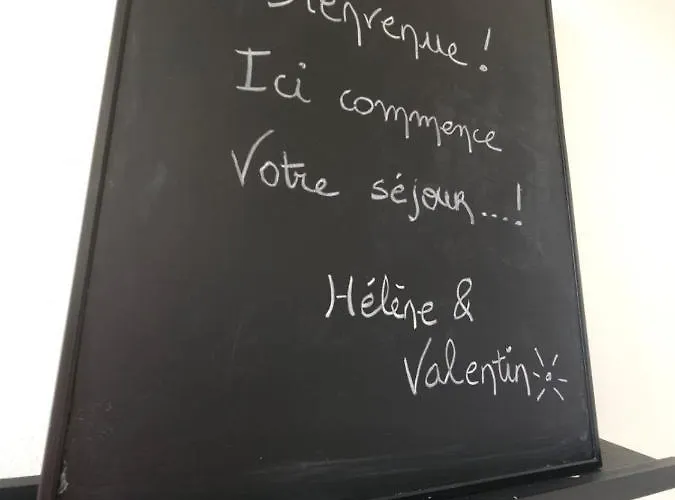 Bienvenue !
Ici commence
Votre séjour...!
Hélène &
Valentin